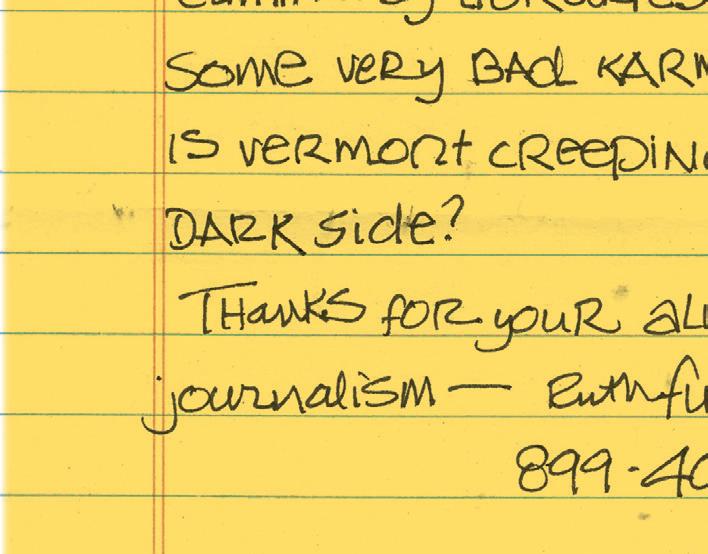 Some very BAd KARM
is vermont CReepiNG
DARK side?
THanks foR youR aLL
journalism — Ruth fu
899-40